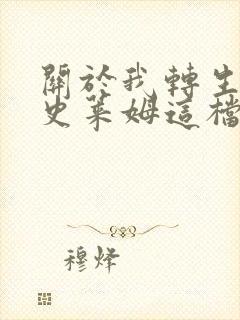 關於我轉生
史萊姆這檔
穆烽